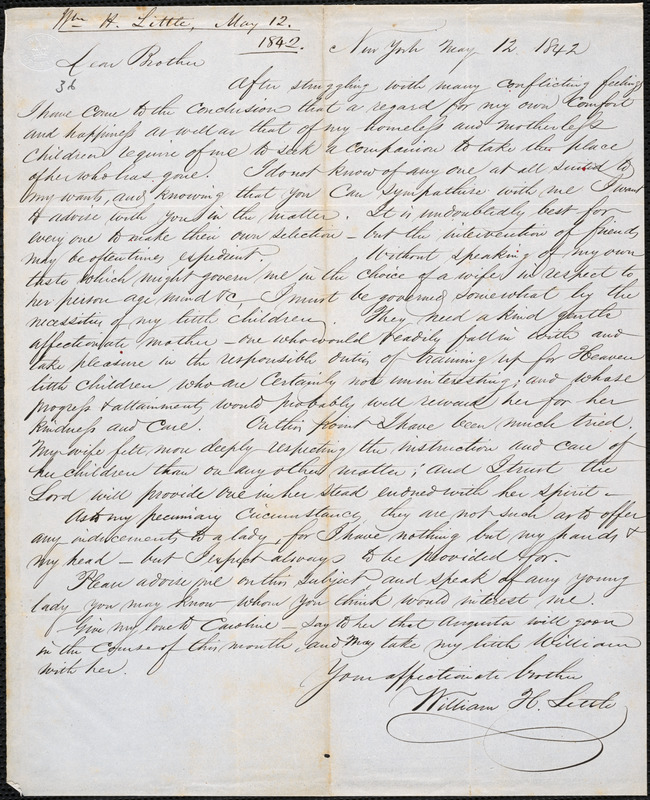 Wm H. Little, May 12.
1842.
New York May 12 1842
Dear Brother
36
After struggling with many conflicting feelings
I have come to the conclusion that a regard for my own comfort
and happiness as well as that of my homeless and motherless
children require of me to seek a companion to take the place
of her who has gone. I do not know of any one at all suited to
my wants, and knowing that you can sympathise with me I want
to advise with you in the matter. It is undoubtedly best for
every one to make their own selection – but the intervention of friends
may be oftentimes expedient. Without speaking of my own
taste which might govern me in the choice of a wife in respect to
her person age mind &c, I must be governed somewhat by the
necessities of my little children. They need a kind gentle
affectionate mother – one who would readily fall in with and
take pleasure in the responsible duties of training up for Heaven
little children who are certainly not uninteresting; and whose
progress & attainments would probably well reward her for her
kindness and care. On this point I have been much tried.
My wife felt more deeply respecting the instruction and care of
her children than on any other matter; and I trust the
Lord will provide one in her stead endowed with her spirit –
As to my pecuniary circumstances, they are not such as to offer
any inducements to a lady, for I have nothing but my hands &
my head – but I expect always to be provided for.
Please advise me on this subject and speak of any young
lady you may know whom you think would interest me.
Give my love to Caroline – Say to her that Augusta will go on
in the course of this month, and may take my little William
with her.
Your affectionate brother
William H. Little